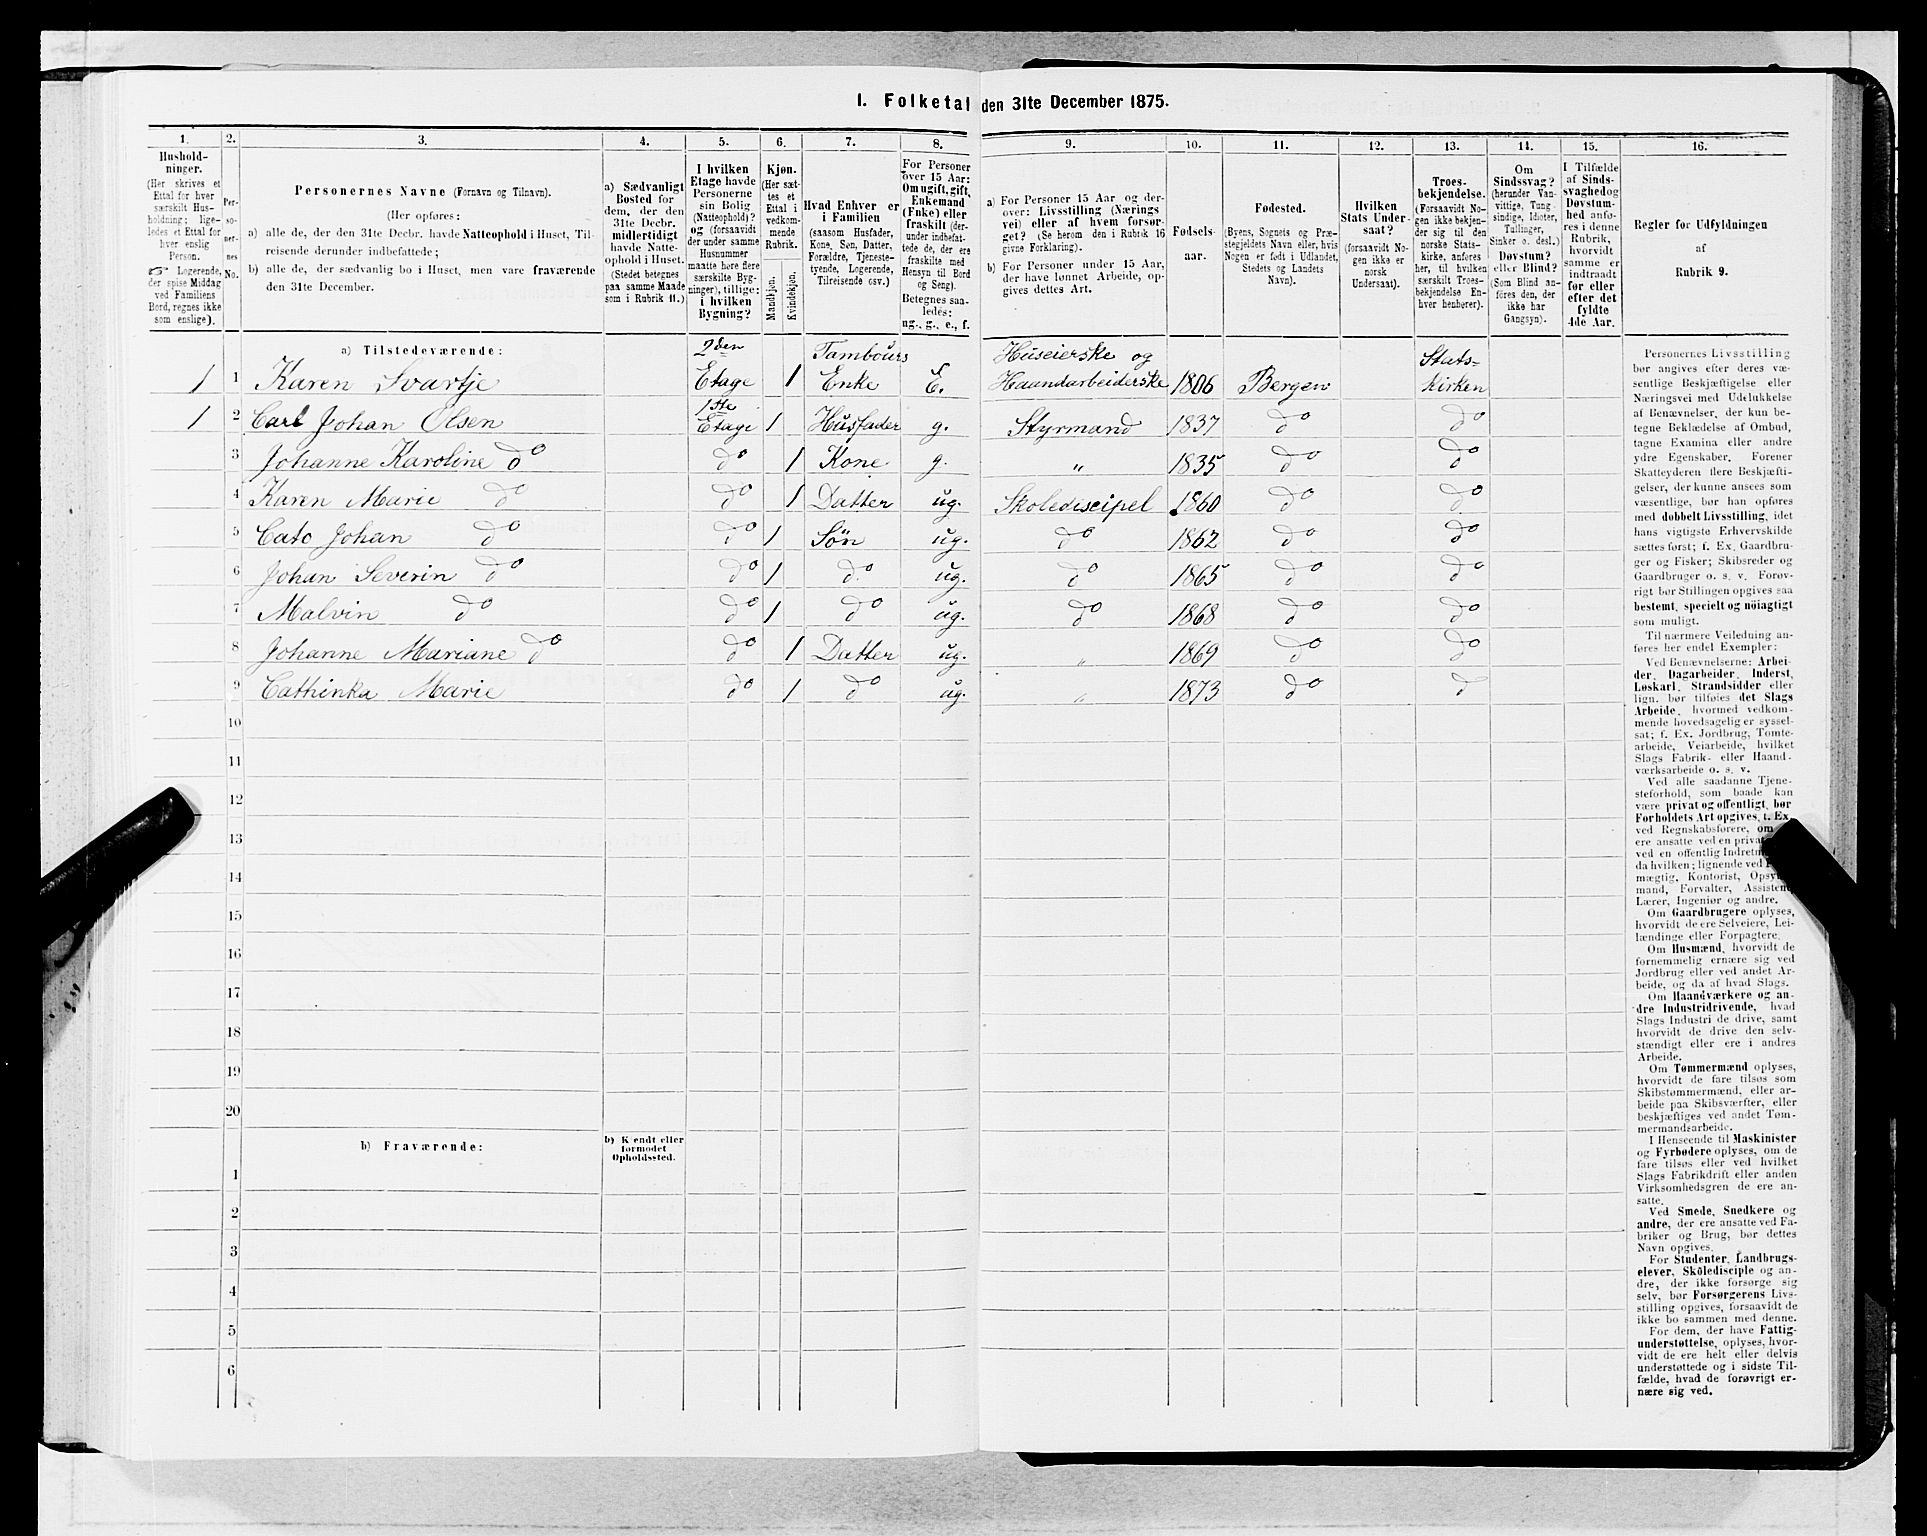 I. Folketal den 31te December 1875.
1. 2. 3. 4. 5. 6. 7. 8. 9. 10. 11. 12. 13. 14. 15. 16.
Hushold-
ninger.
(Her skrives et
Ettal for hver
særskilt Hus-
holdning; lige-
ledes et Ettal for
hver enslig
Person.
☞ Logerende,
der spise Middag
ved Familiens
Bord, regnes ikke
som enslige).
Per-
so-
ner-
nes
No.
Personernes Navne (Fornavn og Tilnavn).
(Her opføres:
a) alle de, der den 31te Decbr. havde Natteophold i Huset, Til-
reisende derunder indbefattede;
b) alle de, der sædvanlig bo i Huset, men vare fraværende
den 31te December.
a) Sædvanligt
Bosted for
dem, der den
31te Decbr.
midlertidigt
havde Natte-
ophold i Huset.
(Stedet betegnes
paa samme Maade
som i Rubrik 11.)
I hvilken
Etage havde
Personerne
sin Bolig
(Natteophold)?
og (forsaavidt
der under samme
Husnummer
maatte høre flere
særskilte Byg-
ninger), tillige:
i hvilken
Bygning?
Kjøn.
(Her sæt-
tes et
Ettal i
vedkom-
mende
Rubrik.
Mandkjøn.
Kvindekjøn.
Hvad Enhver er
i Familien
(saasom Husfader,
Kone, Søn, Datter,
Forældre, Tjeneste-
tyende, Logerende,
Tilreisende osv.)
For Personer
over 15 Aar:
Om ugift, gift,
Enkemand
(Enke) eller
fraskilt (der-
under indbefat-
tede de, der ere
fraskilte med
Hensyn til Bord
og Seng).
Betegnes saa-
ledes:
ug., g., e., f.
a) For Personer 15 Aar og der-
over: Livsstilling (Nærings
vei) eller af hvem forsør-
get? (Se herom den i Rubrik 16
givne Forklaring).
b) For Personer under 15 Aar,
der have lønnet Arbeide, op-
gives dettes Art.
Fødsels-
aar.
Fødested.
(Byens, Sognets og Præ-
stegjeldets Navn eller, hvis
Nogen er født i Udlandet,
Stedets og Landets
Navn).
Hvilken
Stats Under-
saat?
(forsaavidt No-
gen ikke er
norsk
Undersaat).
Troes-
bekjendelse.
(Forsaavidt No-
gen ikke bekjen-
der sig til den
norske Stats-
kirke, anføres
her, til hvilken
særskilt Troes-
bekjendelse En-
hver henhører).
Om
Sindssvag?
(herunder Van-
vittige, Tung-
sindige, Idioter,
Tullinger,
Sinker o. desl.)
Døvstum?
eller Blind?
(Som Blind an-
føres den, der
ikke har
Gangsyn).
I Tilfælde
af Sinds-
svaghed og
Døvstum-
hed anfø-
res i denne
Rubrik,
hvorvidt
samme er
indtraadt
før eller
efter det
fyldte
4de Aar.
Regler for Udfyldningen
af
Rubrik 9.
a) Tilstedeværende:
1 1 Karen Svartje 2den Etage 1 Tambours Enke E. Huseierske og Haandarbeiderske 1806 Bergen Stats-kirken
1 2 Carl Johan Olsen 1ste Etage 1 Husfader g. Styrmand 1837 do do
3 Johanne Karoline do do 1 Kone g. " 1835 do do
4 Karen Marie do do 1 Datter ug. Skolediscipel 1860 do do
5 Cato Johan do do 1 Søn ug. do 1862 do do
6 Johan Severin do do 1 do ug. do 1865 do do
7 Malvin do do 1 do ug. do 1868 do do
8 Johanne Mariane do do 1 Datter ug. " 1869 do do
9 Cathinka Marie do 1 do ug. " 1873 do d
10
11
12
13
14
15
16
17
18
19
20
b) Fraværende:
b) Kendt eller
formodet
Opholdssted.
1
2
3
4
5
6
Personernes Livsstilling
bør angives efter deres væ-
sentlige Beskjæftigelse eller
Næringsvei med Udelukkelse
af Benævnelser, der kun be-
tegne Beklædelse af Ombud,
tagne Examina eller andre
ydre Egenskaber. Forener
Skatteyderen flere Beskjæfti-
gelser, der kunne ansees som
væsentlige, bør han opføres
med dobbelt Livsstilling, idet
hans vigtigste Erhvervskilde
sættes først; f. Ex. Gaardbru-
ger og Fisker; Skibsreder og
Gaardbruger o. s. v. Forøv-
rigt bør Stillingen opgives saa
bestemt, specielt og nöiagtigt
som muligt.
Til nærmere Veiledning an-
føres her endel Exempler:
Ved Benævnelserne: Arbei-
der, Dagarbeider, Inderst,
Løskarl, Strandsidder eller
lign. bør tilføies det Slags
Arbeide, hvormed vedkom-
mende hovedsagelig er syssel-
sat; f. Ex. Jordbrug, Tomte-
arbeide, Veiarbeide, hvilket
Slags Fabrik- eller Haand-
værksarbeide o. s. v.
Ved alle saadanne Tjene-
steforhold, som baade kan
være privat og offentligt, bør
Forholdets Art opgives, t. Ex.
ved Regnskabsførere, om
ere ansatte ved en privat
ved en offentlig Indretn
da hvilken; lignende ved
mægtig, Kontorist, Opsy
mand, Forvalter, Assistent,
Lærer, Ingeniør og andre.
Om Gaardbrugere oplyses,
hvorvidt de ere Selveiere, Lei-
lændinge eller Forpagtere.
Om Husmænd, hvorvidt de
fornemmelig ernære sig ved
Jordbrug eller ved andet Ar-
beide, og da af hvad Slags.
Om Haandværkere og an-
dre Industridrivende, hvad
Slags Industri de drive, samt
hvorvidt de drive den selv-
stændigt eller ere i andres
Arbeide.
Om Tømmermænd oplyses,
hvorvidt de fare tilsøs som
Skibstømmermænd, eller ar-
beide paa Skibsværfter, eller
beskjæftiges ved andet Tøm-
mermandsarbeide.
I Henseende til Maskinister
og Fyrbødere oplyses, om de
fare tilsøs eller ved hvilket
Slags Fabrikdrift eller anden
Virksomhedsgren de ere an-
satte.
Ved Smede, Snedkere og
andre, der ere ansatte ved Fa-
briker og Brug, bør dettes
Navn opgives.
For Studenter, Landbrugs-
elever, Skoledisciple og an-
dre, der ikke forsørge sig
selv, bør Forsørgerens Livs-
stilling opgives, forsaavidt de
ikke bo sammen med denne.
For dem, der have Fattig-
understøttelse, oplyses, hvor-
vidt de ere helt eller delvis
understøttede og i sidste Til-
fælde, hvad de forøvrigt er-
nære sig ved.